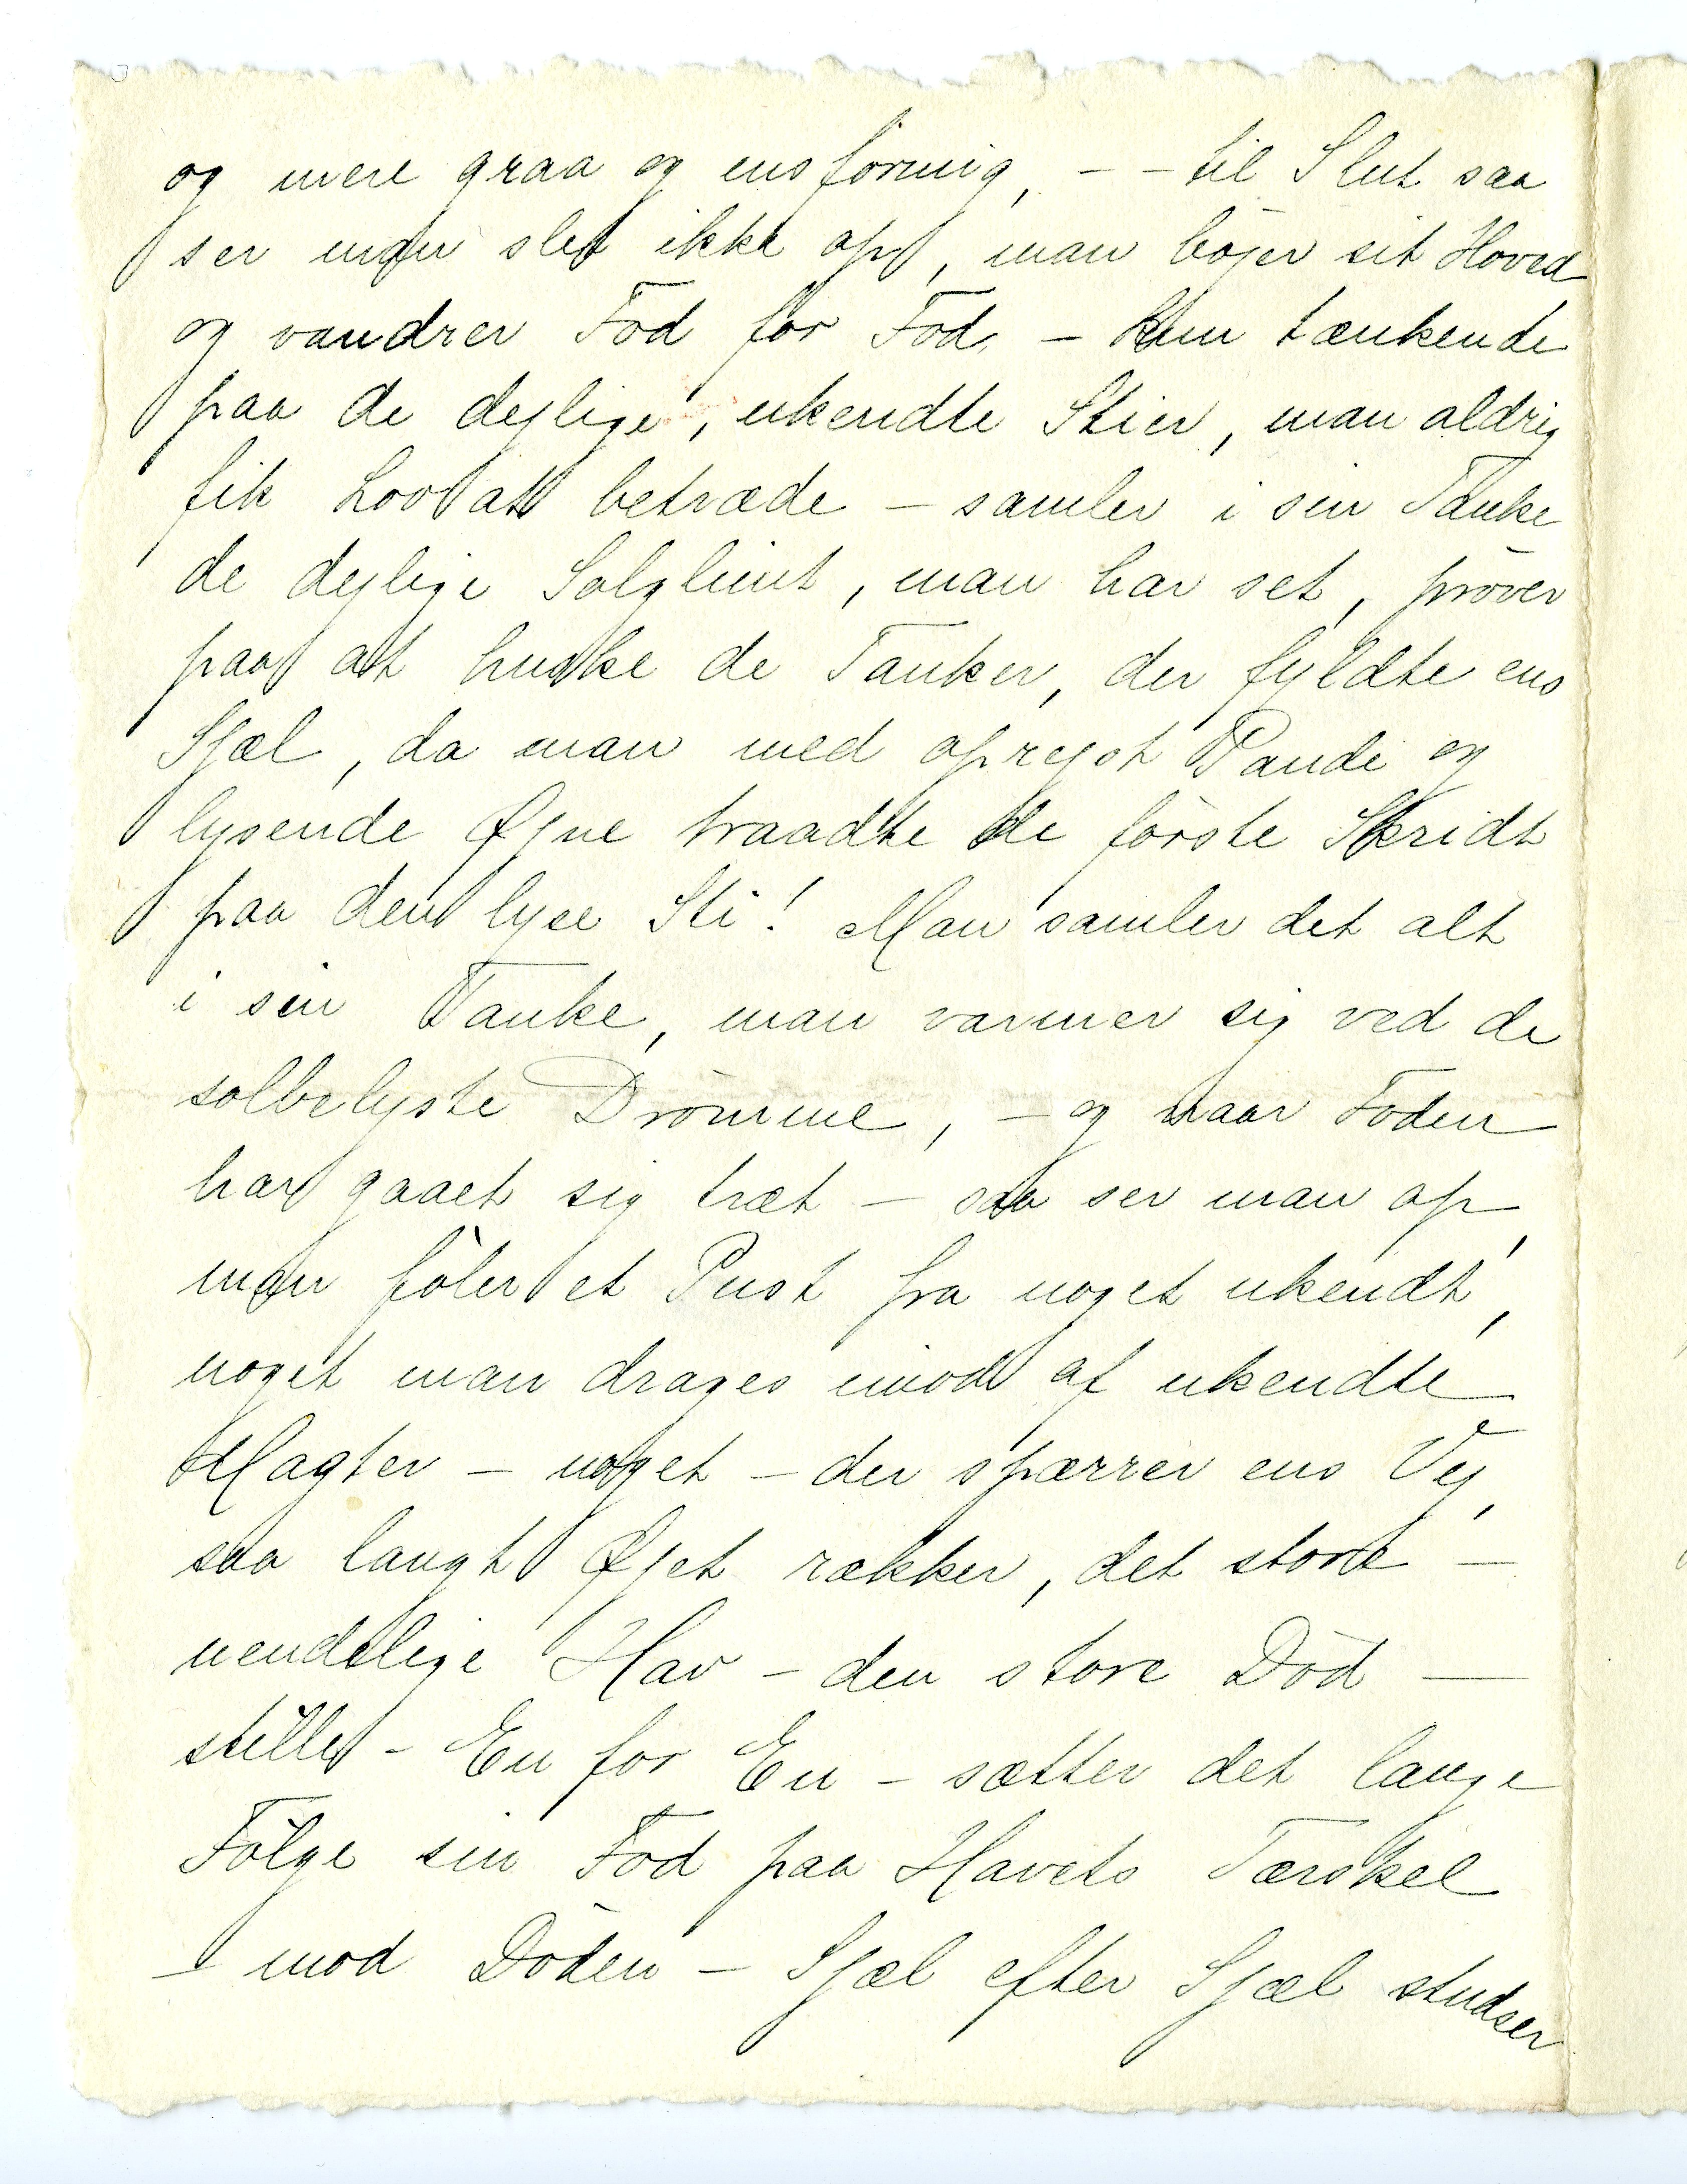 og mere graa og ensformig, - - til Slut saa
ser man slet ikke op, man bøjer sit Hoved
og vandrer Fod for Fod, - kun tænkende
paa de dejlige, ukendte Stier, man aldrig
fik Lov at betræde - samler i sin Tanke
de dejlige Solglimt, man har set, prøver
paa at huske de Tanker, der fyldte ens
Sjæl, da man med oprejst Pande og
lysende Øjne traadte de første Skridt
paa den lyse Sti! Man samler det alt
i sin Tanke, man varmer sig ved de
solbelyste Drømme, - og naar Foden
har gaaet sig træt - saa ser man op,
man føler et Pust fra noget ukendt,
noget man drages imod af ukendte
Magter - noget - der spærrer ens Vej,
saa langt Øjet rækker, det store -
uendelige Hav - den store Død -
stille - En for En - sætter det lange
Følge sin Fod paa Havets Tærskel
- mod Døden - Sjæl efter Sjæl studser